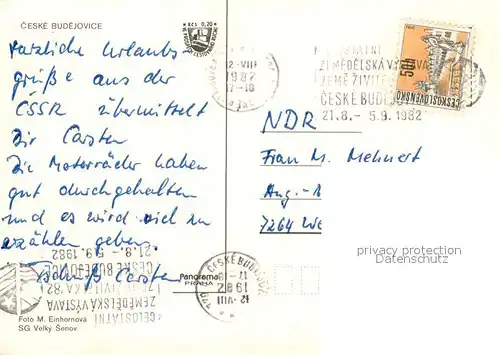 ČESKÉ BUDĚJOVICE
Kčs 0,20
Herzliche Urlaubs-
grüße aus der
ČSSR übermittelt
Dir Carsten
Die Motorräder haben
gut durchgehalten
und es wird viel zu
erzählen geben.
Tschüß Carsten
12-VIII
1982
17-18
CELOSTÁTNÍ
ZEMĚDĚLSKÁ VÝSTAVA
ZEMĚ ŽIVITELKA
ČESKÉ BUDĚJOVICE
21.8.- 5.9.1982
50h
ČESKOSLOVENSKO
NDR
Frau M. Mehnert
Aug.-
7264 We
privacy protection
Datenschutz
21.8.- 5.9.1982
ČESKÉ BUDĚJOVICE
ŽIVITELKA '82
ZEMĚDĚLSKÁ VÝSTAVA
CELOSTÁTNÍ
Panorama
PRAHA
ČESKÉ BUDĚJOVICE
12-VIII
1982
17-18
Foto M. Einhornová
SG Velký Šenov